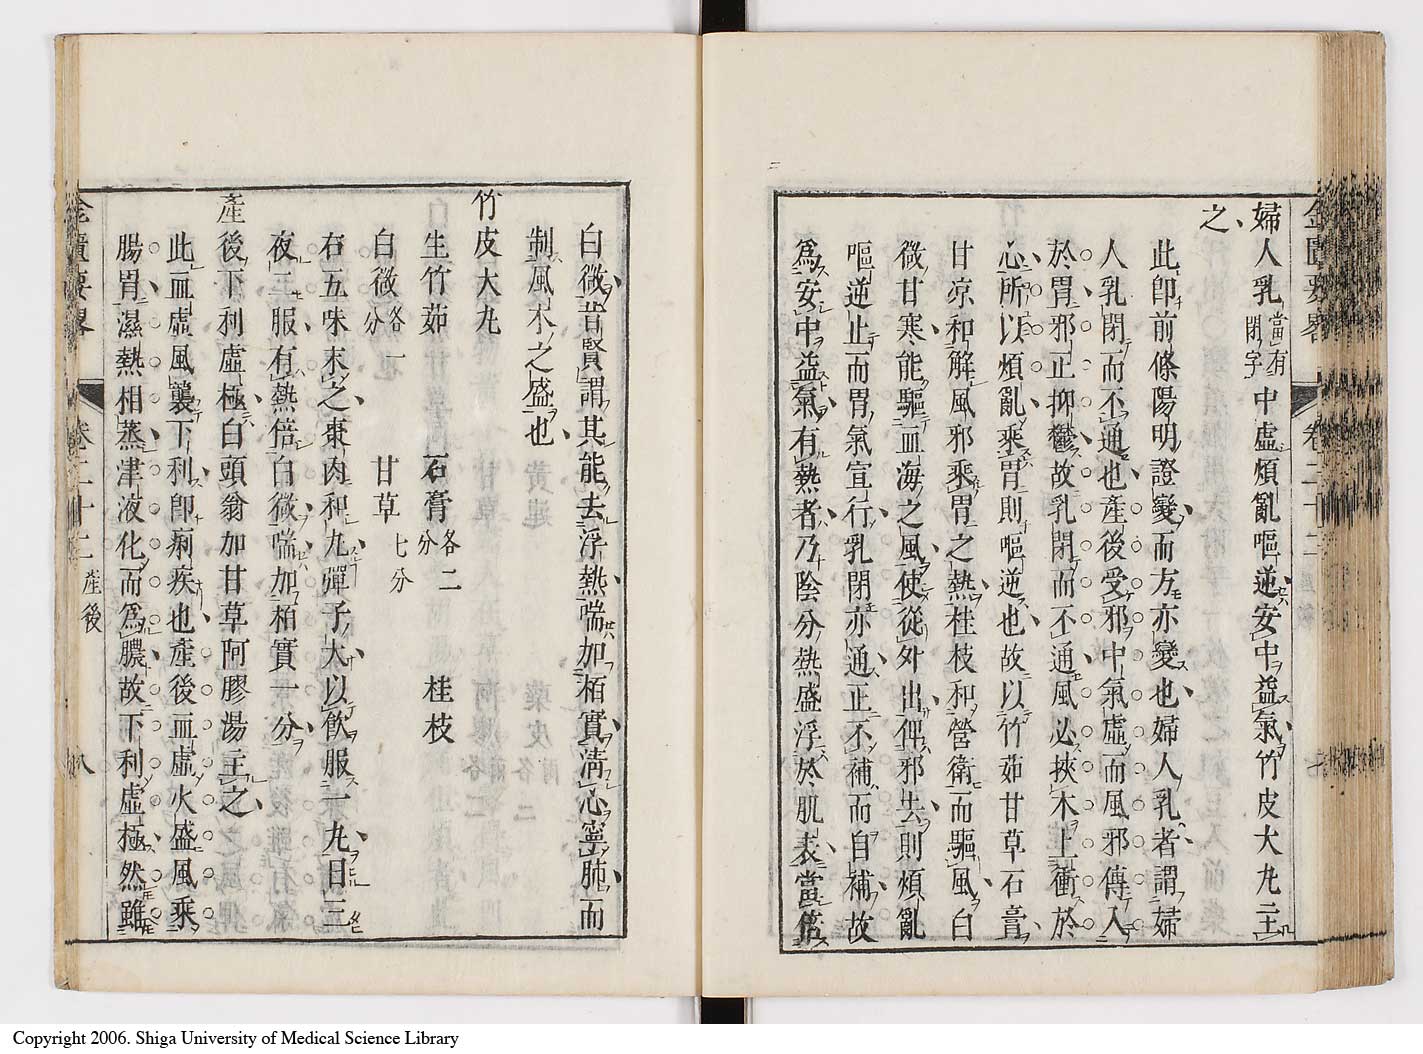 婦人乳當有閉字中虛煩亂嘔逆安中益氣竹皮大丸主
之
此卽前條陽明證變而方亦變也婦人乳者謂婦
人乳閉而不通也產後受邪中氣虛而風邪傳入
於胃邪正抑鬱故乳閉而不通風必挾木上衝於
心所以煩亂乘胃則嘔逆也故以竹茹甘草石膏
甘凉和解風邪乘胃之熱桂枝和營衛而驅風白
微甘寒能驅血海之風使從外出俾邪去則煩亂
嘔逆止而胃氣宣行乳閉亦通正不補而自補故
爲安中益氣有熱者乃陰分熱盛浮於肌表當倍
白微昔賢謂其能去浮熱喘加栢實淸心寧肺而
制風木之盛也
竹皮大丸
生竹茹 石膏各二分 桂枝
白微各一分 甘草七分
右五味末之棗肉和丸彈子大以飮服一丸日三
夜二服有熱倍白微喘加栢實一分
產後下利虛極白頭翁加甘草阿膠湯主之
此血虛風襲下利卽痢疾也產後血虛火盛風乘
腸胃濕熱相蒸津液化而爲膿故下利虛極然雖
金匱要畧 卷二十二 產後 八
Copyright 2006. Shiga University of Medical Science Library